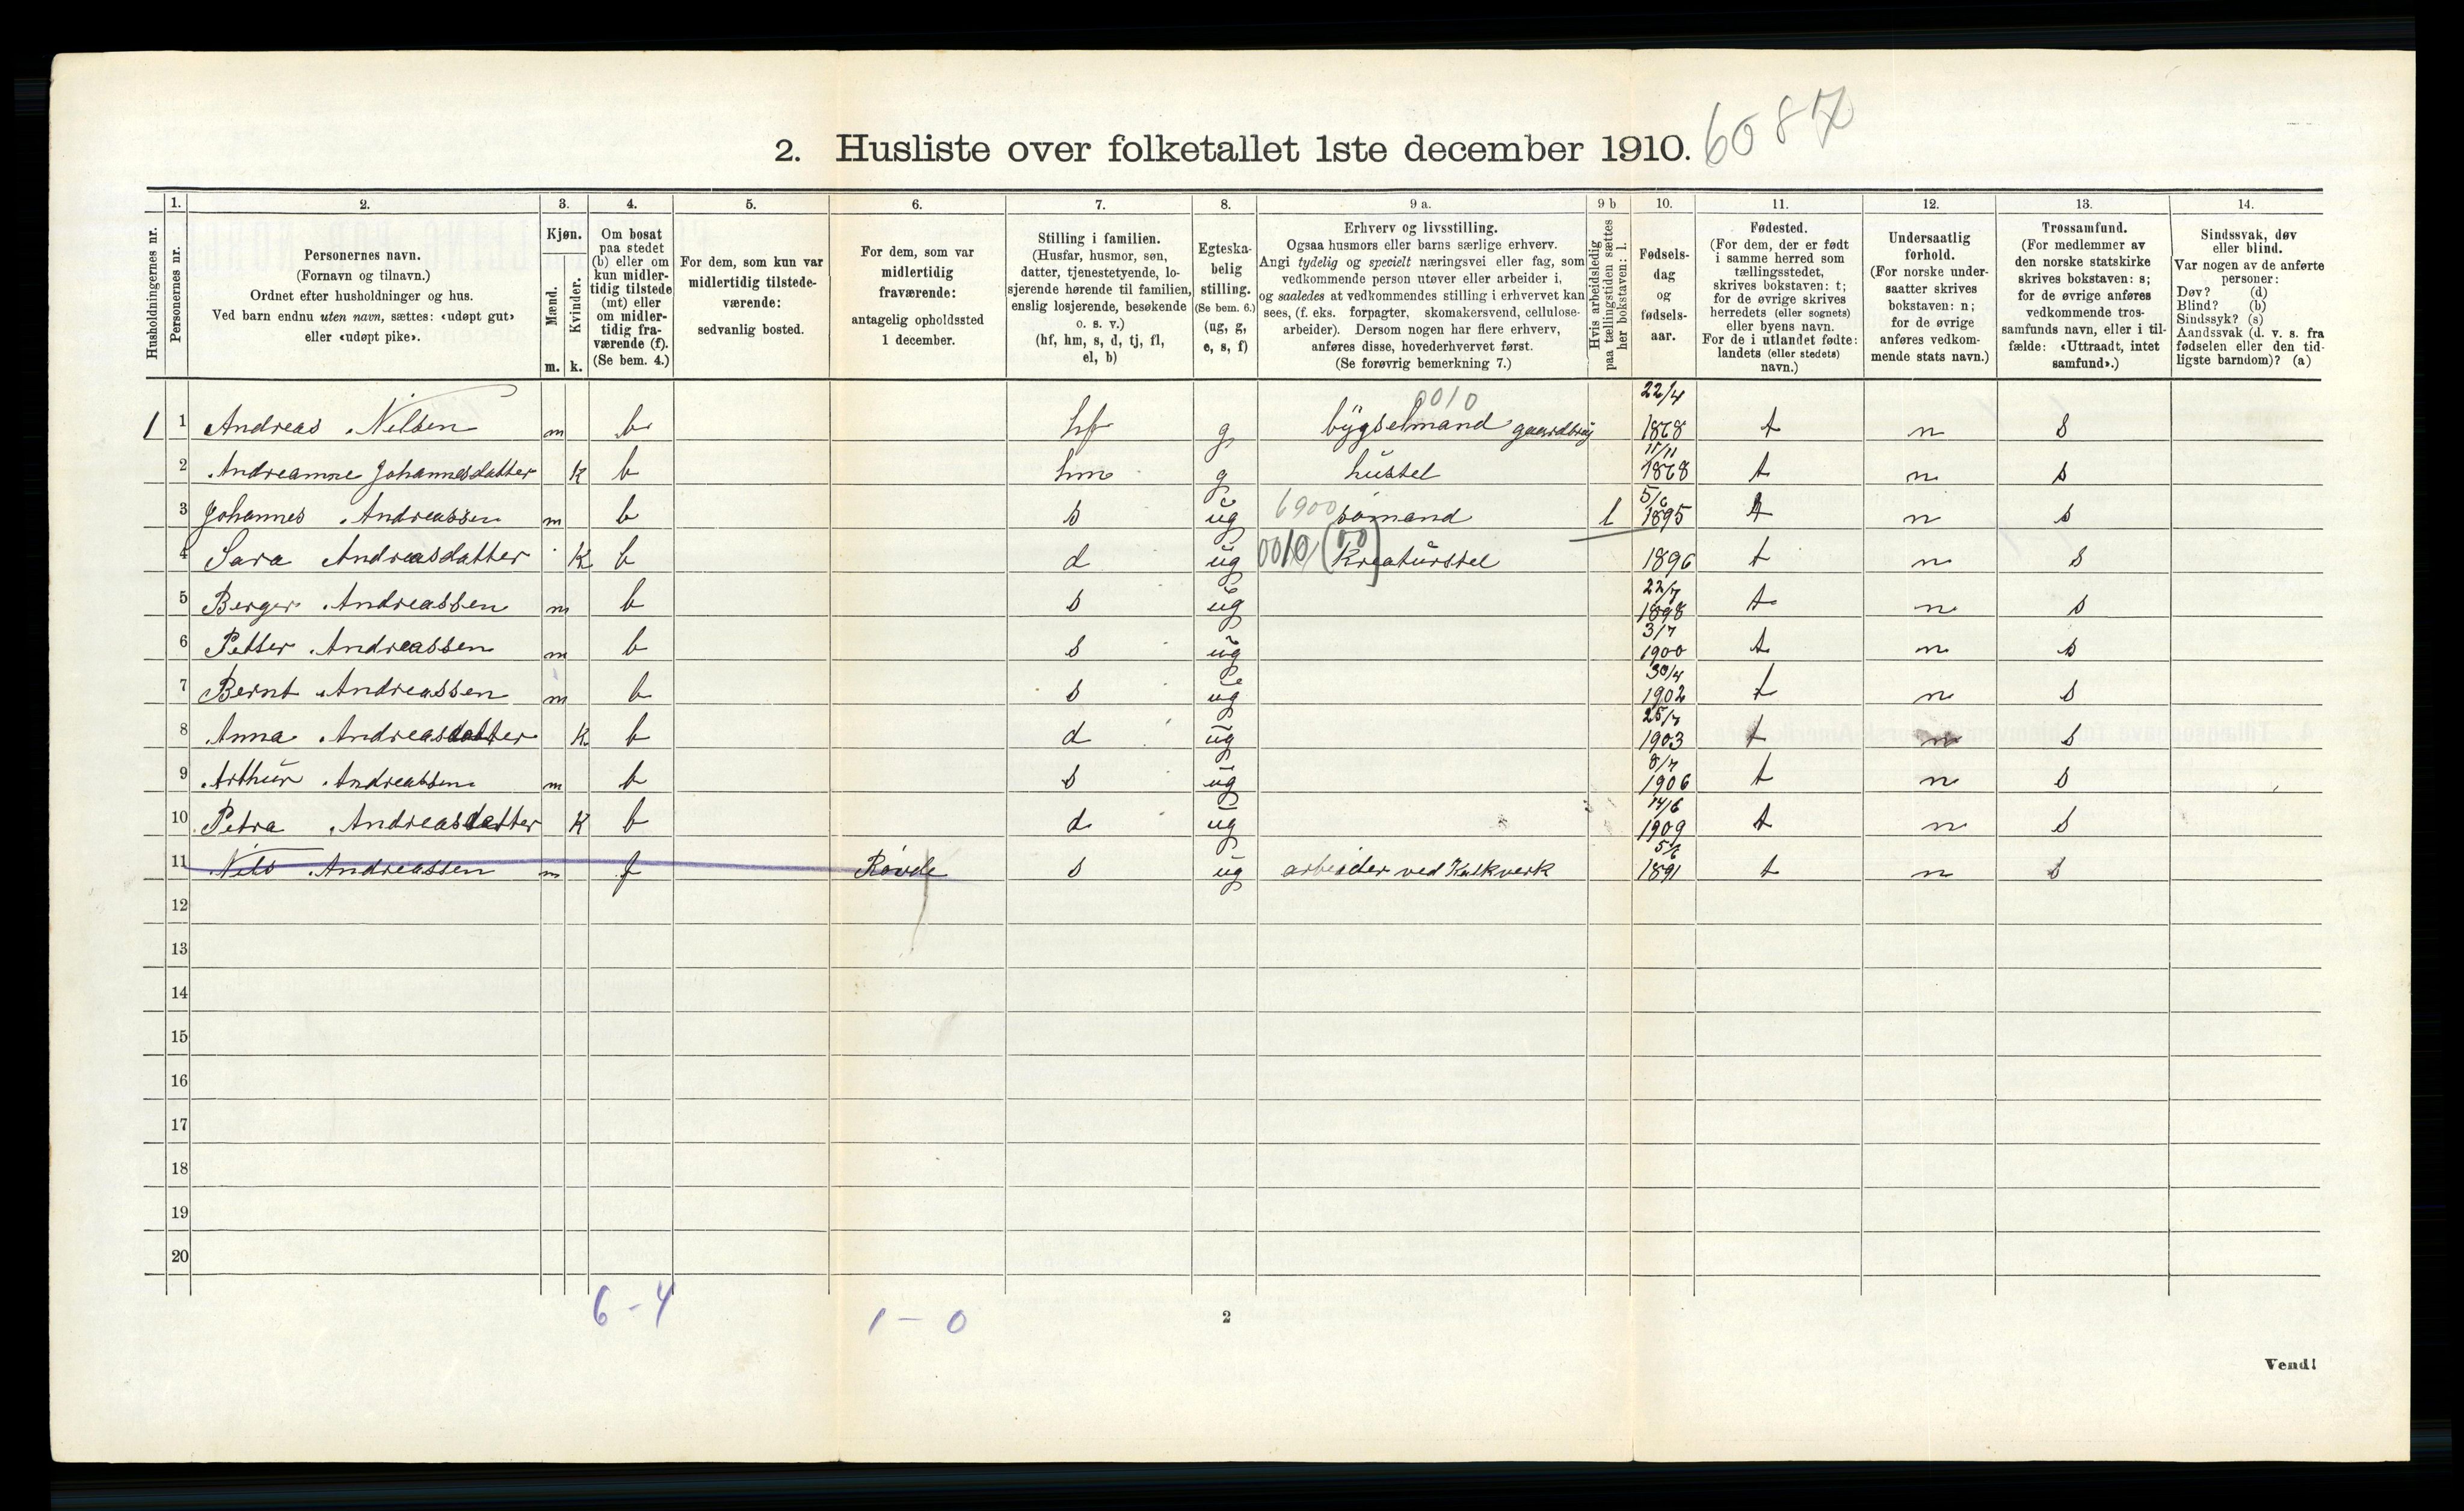 2. Husliste over folketallet 1ste december 1910. 6087
Husholdningernes nr.
1.
Personernes nr.
2.
Personernes navn.
(Fornavn og tilnavn.)
Ordnet efter husholdninger og hus.
Ved barn endnu uten navn, sættes: «udøpt gut»
eller «udøpt pike».
3.
Kjøn.
Mænd.
Kvinder.
m. k.
4.
Om bosat
paa stedet
(b) eller om
kun midler-
tidig tilstede
(mt) eller
om midler-
tidig fra-
værende (f).
(Se bem. 4.)
5.
For dem, som kun var
midlertidig tilstede-
værende:
sedvanlig bosted.
6.
For dem, som var
midlertidig
fraværende:
antagelig opholdssted
1 december.
7.
Stilling i familien.
(Husfar, husmor, søn,
datter, tjenestetyende, lo-
sjerende hørende til familien,
enslig losjerende, besøkende
o. s. v.)
(hf, hm, s, d, tj, fl,
el, b)
8.
Egteska-
belig
stilling.
(Se bem. 6.)
(ug, g,
e, s, f)
9 a.
Erhverv og livsstilling.
Ogsaa husmors eller barns særlige erhverv.
Angi tydelig og specielt næringsvei eller fag, som
vedkommende person utøver eller arbeider i,
og saaledes at vedkommendes stilling i erhvervet kan
sees, (f. eks. forpagter, skomakersvend, cellulose-
arbeider). Dersom nogen har flere erhverv,
anføres disse, hovederhvervet først.
(Se forøvrig bemerkning 7.)
9 b
Hvis arbeidsledig
paa tællingstiden sættes
her bokstaven: l.
10.
Fødsels-
dag
og
fødsels-
aar.
11.
Fødested.
(For dem, der er født
i samme herred som
tællingsstedet,
skrives bokstaven: t;
for de øvrige skrives
herredets (eller sognets)
eller byens navn.
For de i utlandet fødte:
landets (eller stedets)
navn.)
12.
Undersaatlig
forhold.
(For norske under-
saatter skrives
bokstaven: n;
for de øvrige
anføres vedkom-
mende stats navn.)
13.
Trossamfund.
(For medlemmer av
den norske statskirke
skrives bokstaven: s;
for de øvrige anføres
vedkommende tros-
samfunds navn, eller i til-
fælde: «Uttraadt, intet
samfund».)
14.
Sindssvak, døv
eller blind.
Var nogen av de anførte
personer:
Døv? (d)
Blind? (b)
Sindssyk? (s)
Aandssvak (d. v. s. fra
fødselen eller den tid-
ligste barndom)? (a)
0010 22/4
1 1 Andreas Nilsen m b hf g bygselmand gaardbrug 1868 t n s
11/11
2 Andreanne Johannesdatter k b hm g hustel 1868 t n s
5/6
3 Johannes Andreassen m b s ug 6900 sømand l 1895 t n s
4 Sara Andreasdatter k b d ug 0010 (00) Kreaturstel 1896 t n s
22/7
5 Berger Andreassen m b s ug 1898 t n s
3/7
6 Petter Andreassen m b s ug 1900 t n s
30/4
7 Bernt Andreassen m b s ug 1902 t n s
25/7
8 Anna Andreasdatter k b d ug 1903 t n s
8/7
9 Arthur Andreassen m b s ug 1906 t n s
14/6
10 Petra Andreasdatter k b d ug 1909 t n s
5/6
11 Nils Andreassen m f Røvde s ug arbeider ved Kalkverk 1891 t n s
12
13
14
15
16
17
18
19
20
6 - 4
1 - 0
2
Vend!